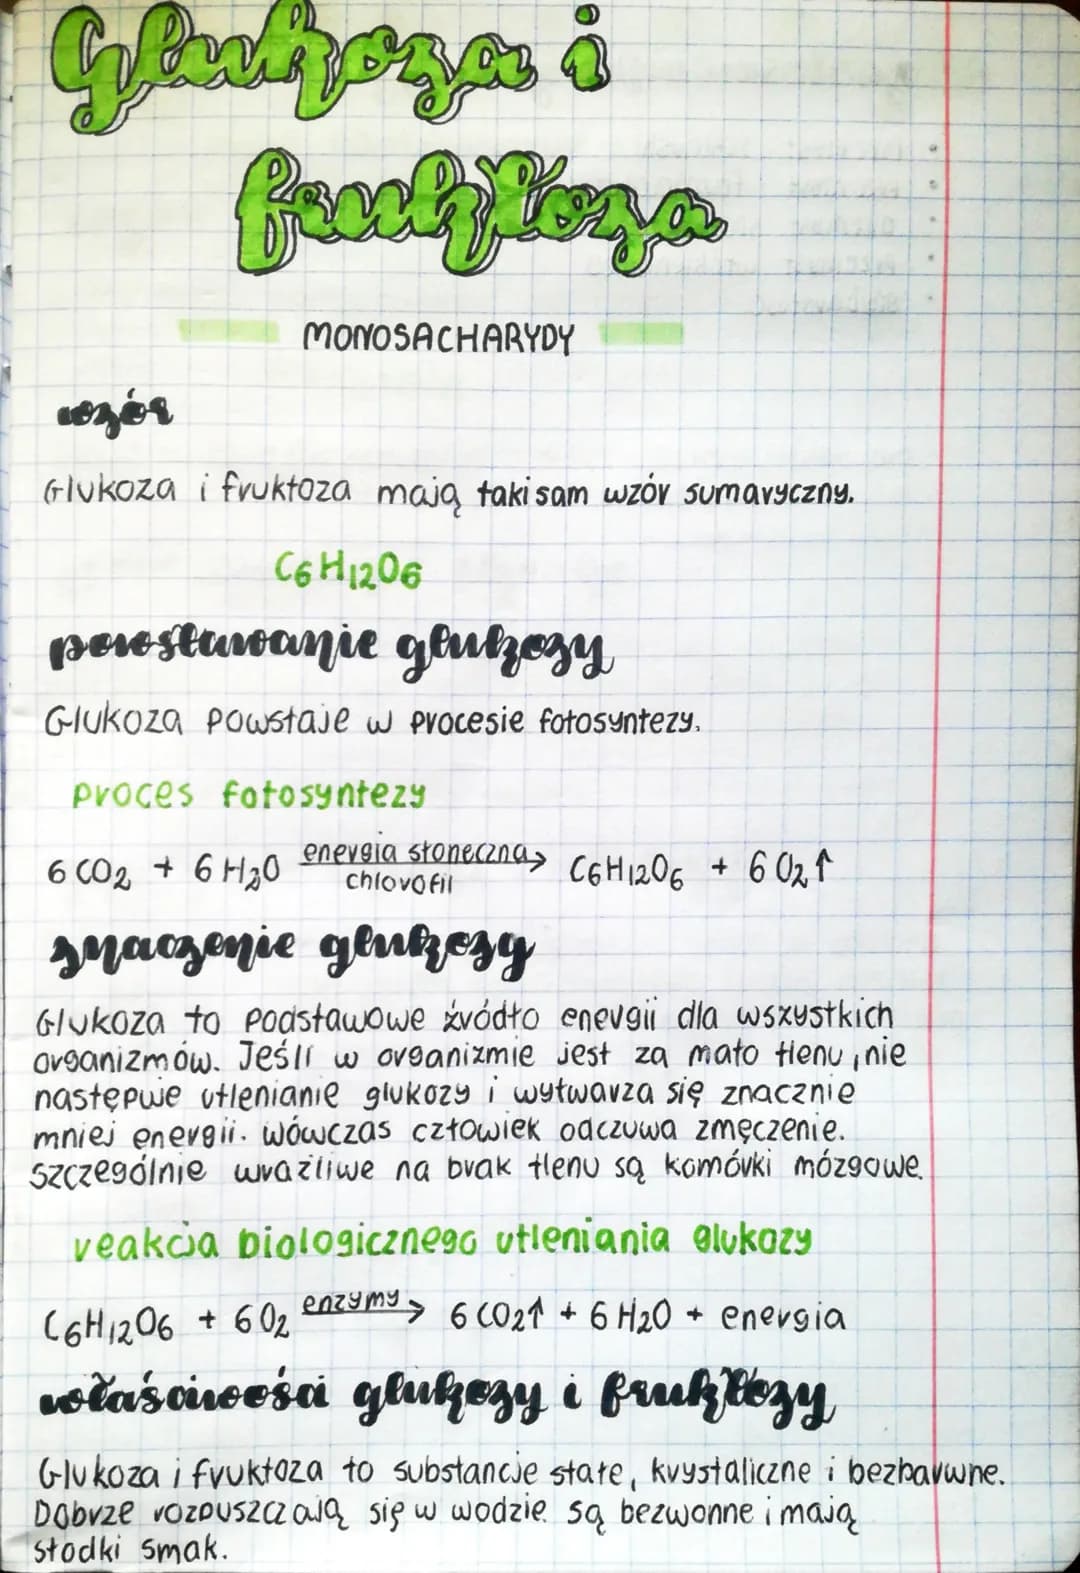 Glukoza i
fruktoza
MONOSACHARYDY
wzór
Glukoza i fruktoza mają taki sam wzór sumaryczny.
C6H12O6
powstawanie glukozy
Glukoza powstaje w procesie fotosyntezy.
proces fotosyntezy
6 CO2 + 6 H2O energia słoneczna → C6H12O6 + 6 O2↑
chlorofil
znaczenie glukozy
Glukoza to podstawowe źródło energii dla wszystkich
organizmów. Jeśli w organizmie jest za mało tlenu, nie
następuje utlenianie glukozy i wytwarza się znacznie
mniej energii. Wówczas człowiek odczuwa zmęczenie.
Szczególnie wrażliwe na brak tlenu są komórki mózgowe.
reakcja biologicznego utleniania glukozy
C6H12O6 + 6 O2 enzymy → 6 CO2↑ + 6 H2O + energia
właściwości glukozy i fruktozy
Glukoza i fruktoza to substancje stałe, krystaliczne i bezbarwne.
Dobrze rozpuszczają się w wodzie. Są bezwonne i mają
słodki smak.